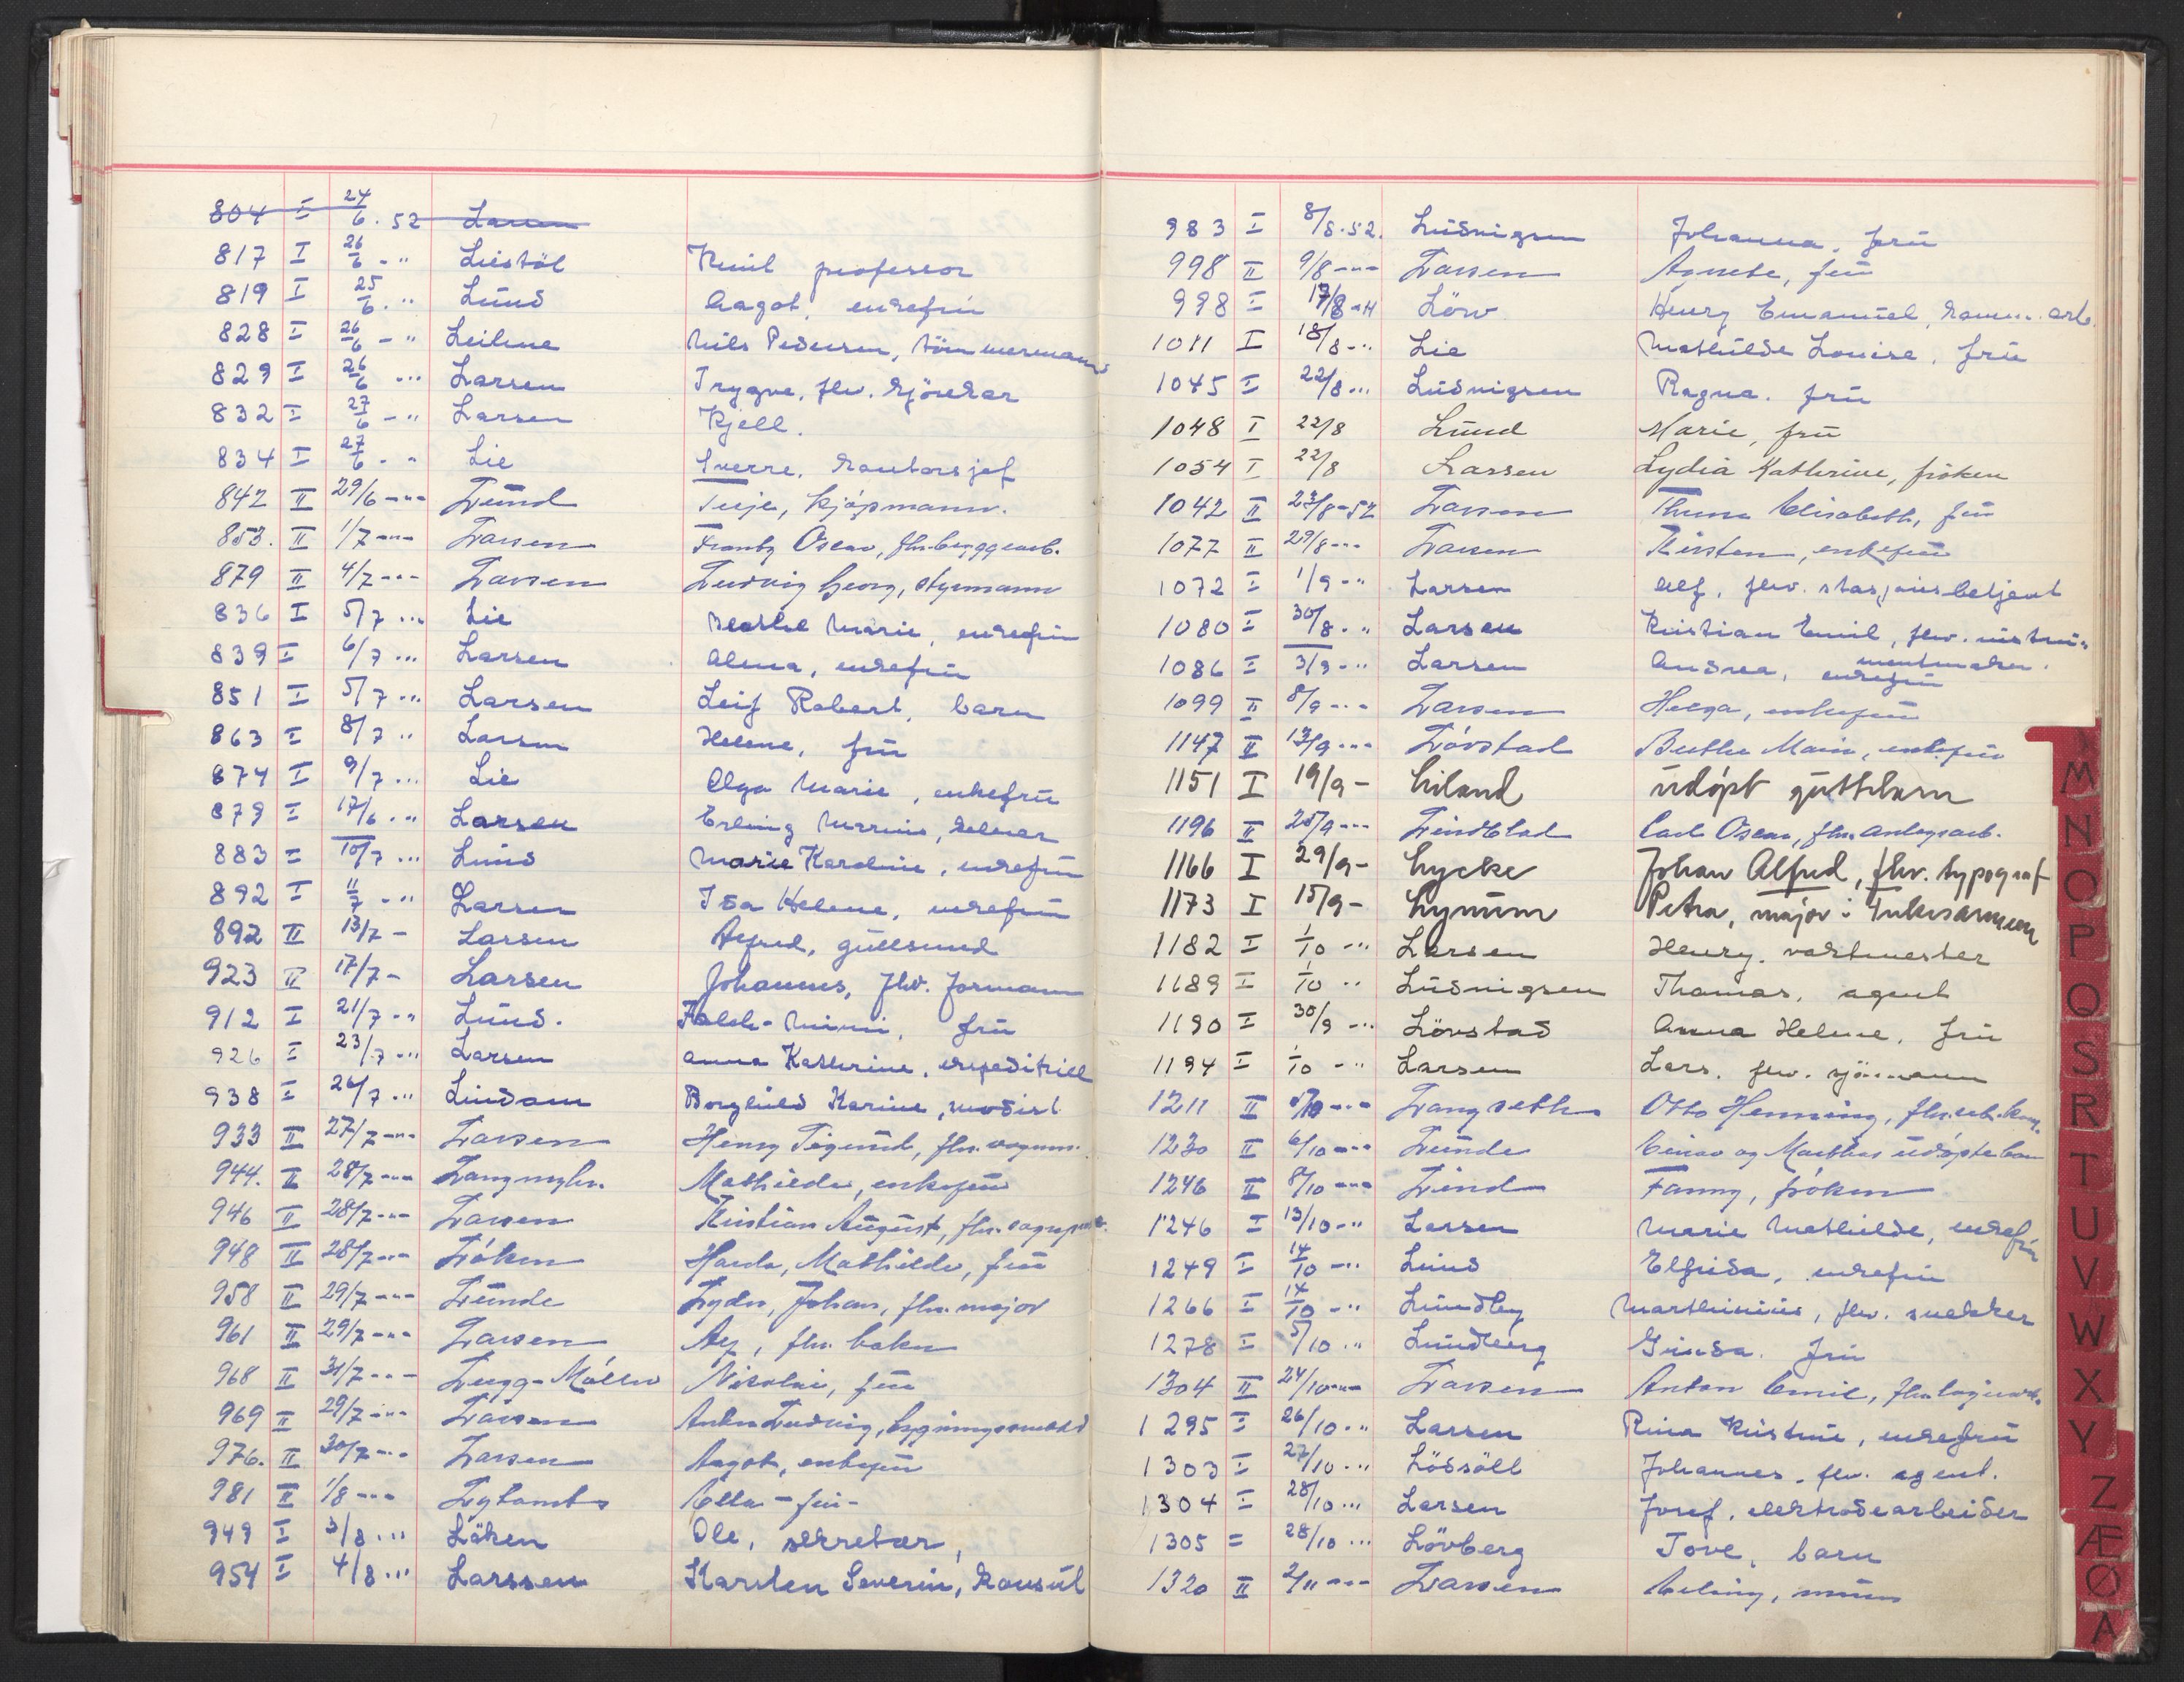 804 I 24/6.52 Larsen
817 I 26/6 - " Liestöl Knut professor
819 I 25/6. " Lund Aagot, enkefru
828 I 26/6 - " Leihne Nils Pedersen, tömmermann
829 I 26/6 ... Larsen Trygve, fhv. kjörekar
832 I 27/6 - " Larsen Kjell.
834 I 27/6 - " Lie Sverre, kontorsjef
842 II 29/6 --- Lund Terje, kjøpmann.
853. II 1/7 --- Larsen Frantz Oscar, fhv. bryggearb.
879 II 4/7 --- Larsen Ludvig Georg, styrmann
836 I 5/7 ... Lie Marie, enkefru
839 I 6/7 ... Larsen Alma, enkefru
851 I 5/7 ... Larsen Leif Robert, barn
863 I 8/7 .. Larsen Helene, frü
874 I 9/7 ... Lie Olga Marie, enkefrü
879 I 17/6 ... Larsen Erling Marius, kelner
883 I 10/7 ... Lund Marie Karoline, enkefrü
892 I 11/7 - " Larsen Isa Helene, enkefrü
892 II 13/7 - Larsen Alfred, gullsmed
923 II 17/7 - Larsen Johannes, fhv. formann
912 I 21/7 - " Lund. Falch-Mimi, frü
926 I 23/7 ... Larsen Anna Kathrine, ekspeditrise
938 I 26/7 ... Lindam Borghild Karine, modist
933 II 27/7 --- Larsen Henry Sigurd, fhv. vognm.
944. II 28/7 --- Langmyhr. Mathilde, enkefrü
946 II 28/7 --- Larsen Kristian August, fhv.
948 II 28/7 --- Løken Harda, Mathilde, frü
958 II 29/7 --- Lunde Lyder, Johan, fhv. major
961 II 29/7 --- Larsen Alf, fhv. baker
968 II 31/7 --- Lugg-Møller Nicolai, frü
969 II 29/7 --- Larsen Anton Ludvig, bygningssnekker
976. II 30/7 --- Larsen Aagot, enkefrü
981 II 1/8 --- Ella - frü -
949 I 3/8 ... Löken Ole, sekretær,
954 I 4/8 ... Larssen Karsten Severin, konsül
983 I 8/8.52. Lüdvigsen Johanna, frü
998 II 9/8 --- Larsen Agnete, frü
998 I 17/8 - " Löw Henry Emanuel, komm. arb.
1011 I 18/8 - " Lie Mathilde Louise, frü
1045 I 22/8 ... Lüdvigsen Ragna, frü
1048 I 22/8 Lünd Marie, frü
1054 I 22/8 Larsen Lydia Kathrine, frøken
1042 II 23/8-52 Larsen Elisabeth, frü
1077 II 29/8 --- Larsen Kirsten, enkefrü
1072 I 1/9 - " Larsen Alf, fhv. stasjonsbetjent
1080 I 30/8 - " Larsen Kristian Emil, fhv. instru-
1086 I 3/9 - " Larsen Andrea, enkefrü mentmaker.
1099 II 8/9 --- Larsen Helga, enkefrü
1147 II 13/9 --- Løvstad Berthe Marie, enkefrü
1151 I 19/9 - Liland üdøpt güttebarn
1196 II 25/9 --- Lindblad Carl Oscar, fhv. anlegsarb.
1166 I 29/9 - Lycke Johan Alfred, fhv. typograf
1173 I 15/9 - Lynüm Petra, major i Frelsesarmeen
1182 I 1/10 --- Larsen Henry, vaktmester
1189 I 1/10 .. Lüdvigsen Thomas, agent
1190 I 30/9 --- Lövstad Anna Helene, frü
1194 I 1/10 - " Larsen Lars, fhv. sjömann
1211 II 5/10 --- Langseth Otto Henning, fhv.
1230 II 6/10 --- Lünde Einar og Marthas üdøpte barn
1246 II 8/10 --- Lind Fanny, frøken
1246 I 13/10 - " Larsen Marie Mathilde, enkefrü
1249 I 14/10 - " Lund Elfrida, enkefrü
1266 I 14/10 - " Lündby Marthinius, fhv. snekker
1278 I 5/10 .. " Lündberg Gunda, frü
1304 II 24/10 --- Larsen Anton Emil, fhv.
1295 I 26/10 .. " Larsen Rina Kristine, enkefrü
1303 I 27/10 ... Lödsöll Johannes, fhv. agent.
1304 I 28/10 ... Larsen Josef, elektrodearbeider
1305 = 28/10 ... Lövberg Tove, barn
1320 II 2/11 --- Larsen Erling, mürer
M
N
O
P
Q
S
R
T
U
V
W
X
Y
Z
Æ
Ø
A